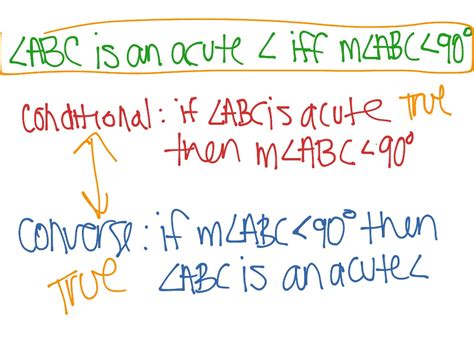 ∠ABC is an acute ∠ iff m∠ABC<90°
Conditional: if ∠ABC is acute True
then m∠ABC<90°
Converse: if m∠ABC<90° then
True ∠ABC is an acute∠